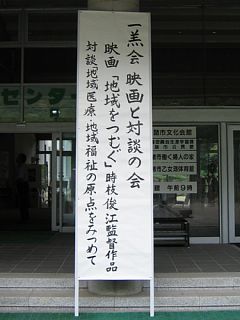 一羔会 映画と対談の会
映画「地域をつむぐ」時枝俊江監督作品
対談 地域医療・地域福祉の原点をみつめて
センター
関市文化会館
関市働く婦人の家
午前9時